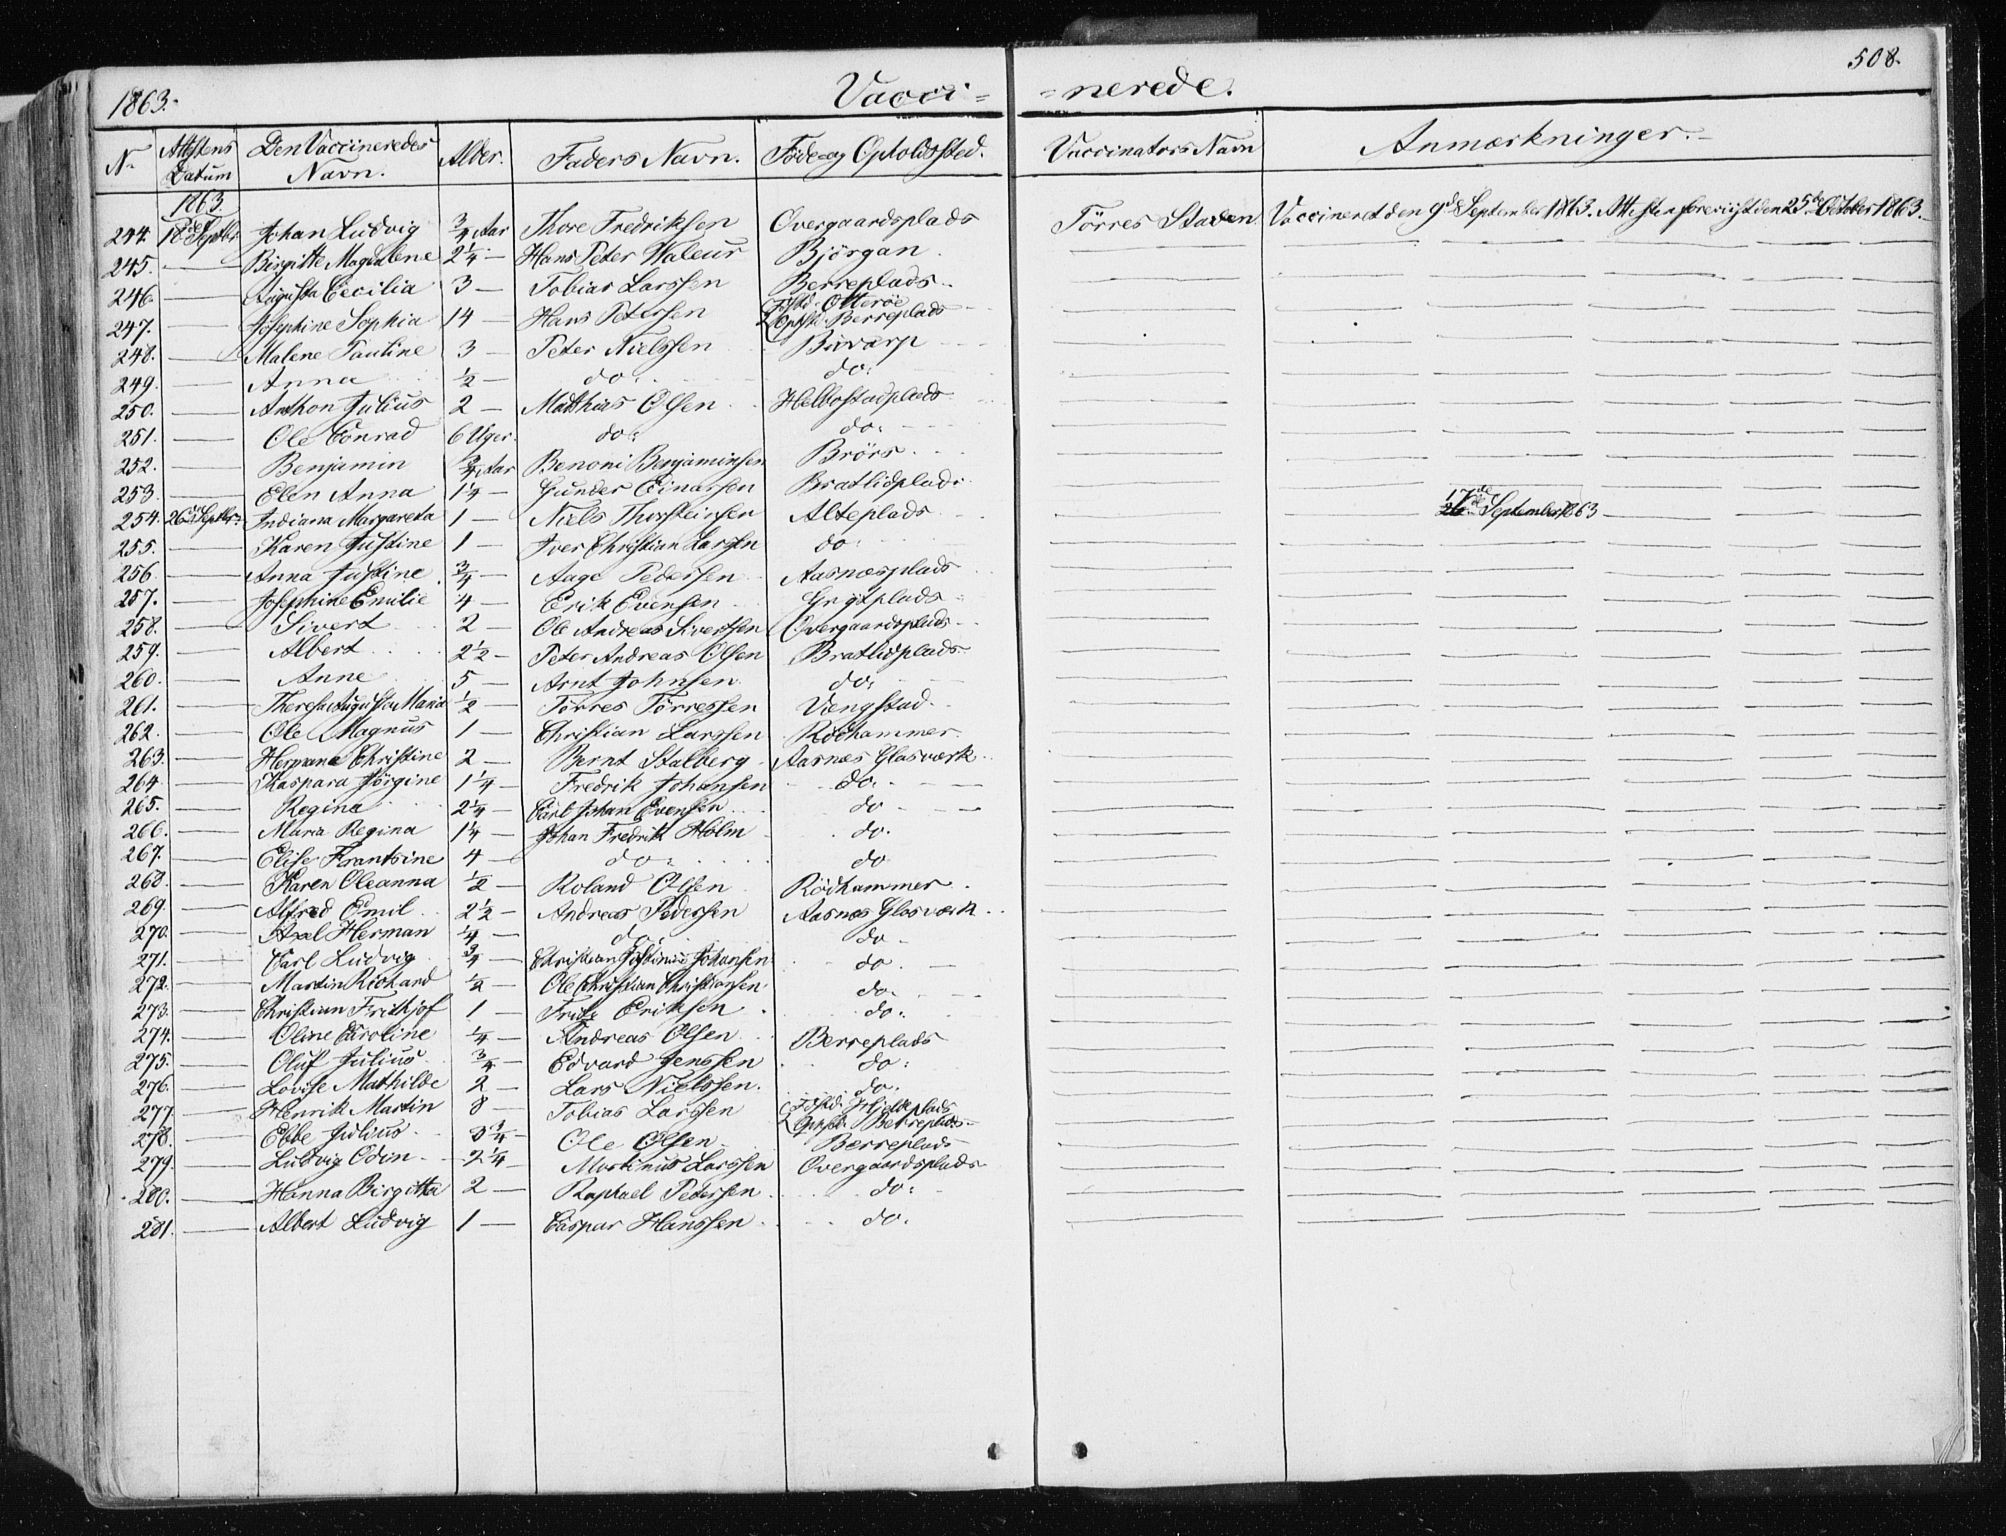 508.
1863. Vacci= =nerede.
N. Attestens Datum Den Vaccineredes Navn. Alder. Faders Navn. Føde og Opholdssted. Vaccinators Navn Anmærkninger.
1863.
244. 18de Septbr Johan Ludvig 3/4 Aar Thore Fredriksen Overgaardsplads Törres Staven Vaccineret den 9de September 1863. Attesten foreviist den 25de October 1863.
245. — Birgitte Magdalene 2 1/4 — Hans Peter Waleur Björgan
246. — Augusta Cecilia 3 — Tobias Larssen Berreplads
247. — Josephine Sophia 14 — Hans Petersen Fdstd. Otterøe Ophstd. Berreplads
248. — Malene Pauline 3 — Peter Nielssen Barvarp
249. — Anna 1/2 — do: do:
250. — Anthon Julius 2 — Matthias Olsen Helbostadplads
251. — Ole Conrad 6 Uger. do: do:
252. — Benjamin 3/4 Aar Benoni Benjaminsen Brörs
253. — Elen Anna 1 1/4 — Gunder Einarssen Bratlidplads
254. 26de Septbr. Indiana Margareta 1 — Niels Thorsteinsen Alteplads 17de September 1863
255. — Karen Justine 1 — Iver Christian Larssen do
256. — Anna Justine 3/4 — Aage Pedersen Aasnæsplads
257. — Josephine Emilie 4 — Erik Evensen
258. — Sivert 2 — Ole Andreas Sivertsen Overgaardsplads
259. — Albert 2 1/2 — Peter Andreas Olsen Bratlidplads
260. — Anne 5 — Arnt Johnsen do:
261. — Theresa Augusta Maria 1/2 — Törres Törressen Vengstad
262. — Ole Magnus 1 — Christian Larssen Rödhammer
263. — Hermana Christine 2 — Bernt Stalberg Aasnæs Glasværk
264 — Kaspara Jörgine 1 1/4 — Fredrik Johansen do.
265. — Regina 2 1/4 — Carl Johan Evensen do
266. — Maria Regina 1 1/4 — Johan Fredrik Holm do.
267. — Elise Frantsine 4 — do: do
268. — Karen Oleanna 1/2 — Roland Olsen Rödhammer
269. — Alfred Emil 2 1/2 — Andreas Pedersen Aasnæs Glasværk
270. — Axel Herman 1/4 — do: do
271. — Carl Ludvig 3/4 — Christian Justinius Johansen do
272. — Martin Richard 1/2 — Ole Christian Christiansen do.
273. — Christian Frithjof 1 — Fritz Eriksen do.
274. — Oline Caroline 1/4 — Andreas Olsen Berreplads
275. — Oluf Julius 3/4 — Edvard Jenssen do:
276. — Lovise Mathilde 2 — Lars Nielssen. do.
277. — Henrik Martin 8 — Tobias Larssen Fdstd. Ophstd. Berreplads
278. — Ebbe Julius 3 3/4 — Ole Olsen Berreplads
279. — Ludvig Odin 2 1/4 — Martinus Larssen Overgaardsplads
280. — Hanna Birgitta 2 — Raphael Pedersen do:
281. — Albert Ludvig 1 — Caspar Hanssen do.